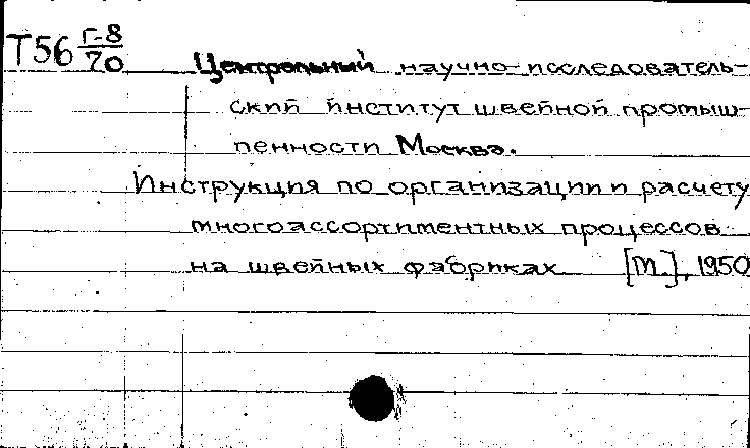 Т56 Г-8/70
Центральный научно-исследователь-
ский институт швейной промыш-
ленности Москва.
Инструкция по организации и расчету
многоассортиментных процессов
на швейных фабриках [М.], 1950